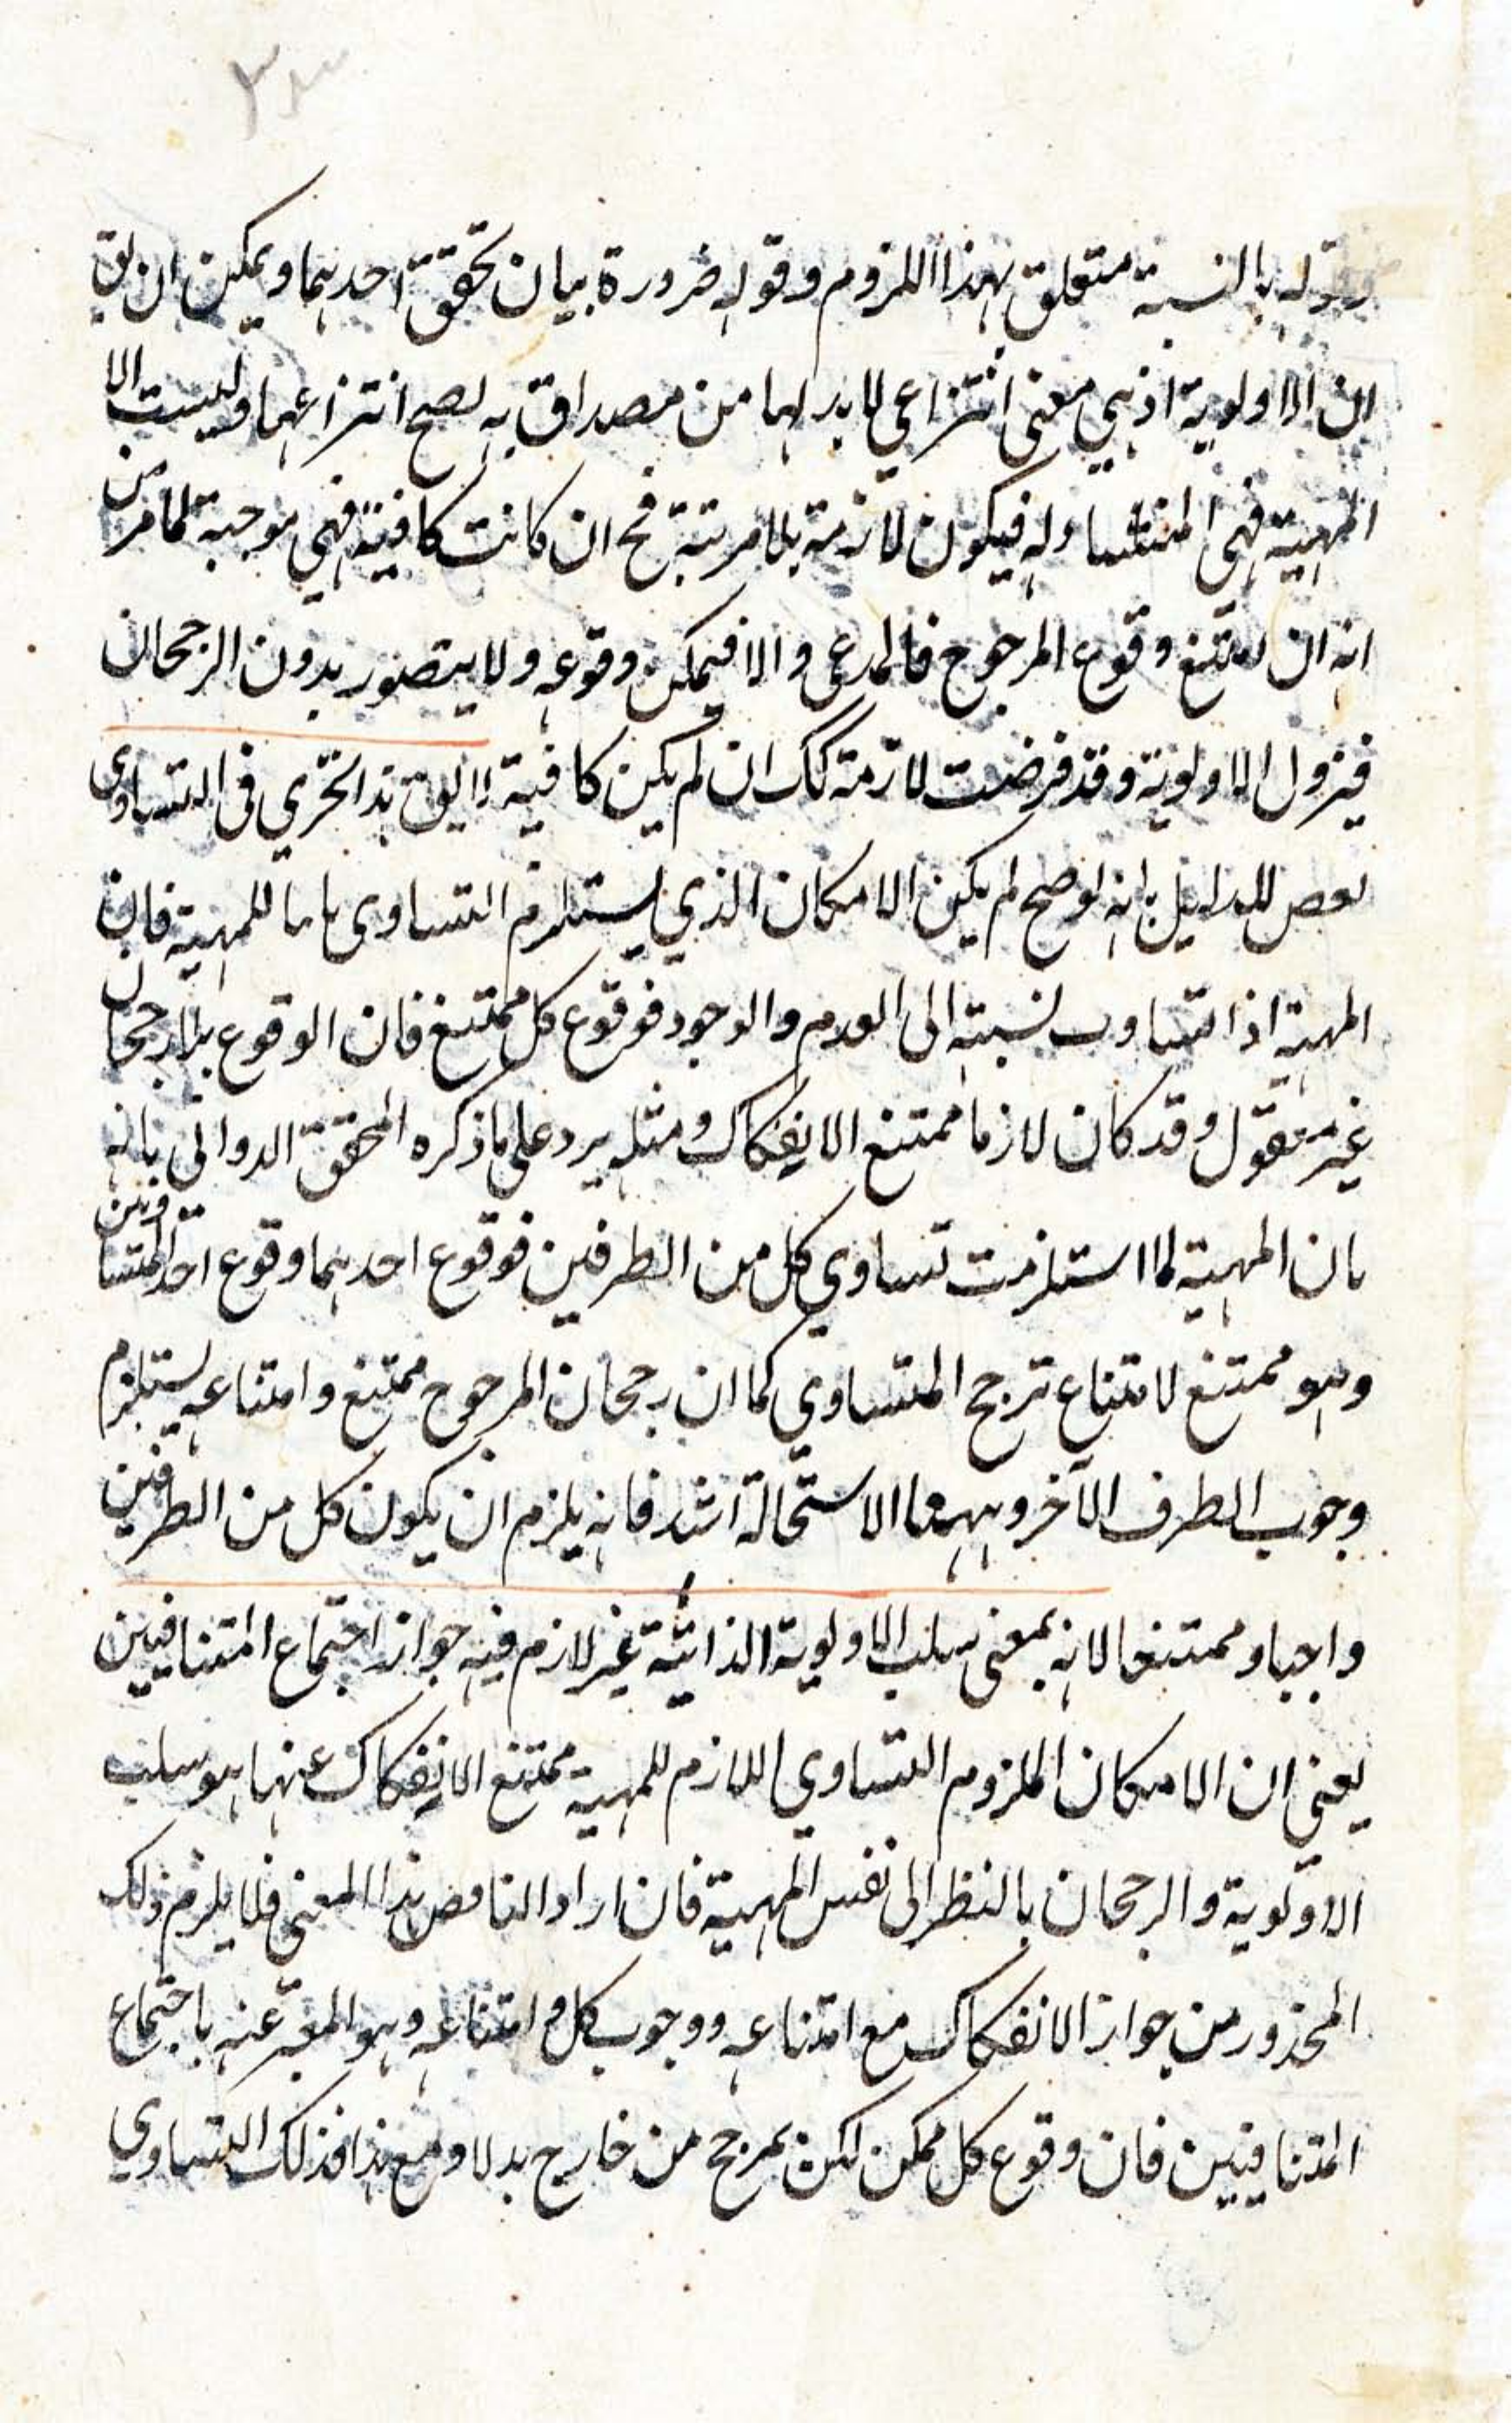 وقوله بالنسبة متعلق بهذا اللزوم وقوله ضرورة بيان تحقق احدهما ويمكن ان يق
ان الاولوية اذ هي معنى انتزاعي لا بد لها من مصداق به يصح انتزاعها وليست الا
المهية فهي المنشأ وله فيكون لازمة بلا مرتبة فح ان كانت كافية فهي موجبة لما مر من
انه ان امتنع وقوع المرجوح فالمدعى والا فيمكن وقوعه ولا يتصور بدون الرجحان
فيزول الاولوية وقد فرضت لازمة كك ان لم يكن كافية لا يق هذا تجرى في التساوى
نقض للدليل بانه لو صح لم يكن الامكان الذي يستلزم التساوى للمهية فان
المهية اذا تساوت نسبته الى العدم والوجود فوقوع كل ممتنع فان الوقوع بلا رجحان
غير معقول وقد كان لازما ممتنع الانفكاك ومثله يرد على ما ذكره المحقق الدوانى بانه
بان المهية لما استلزمت تساوي كل من الطرفين فوقوع احدهما وقوع احد المتساويين
وهو ممتنع لامتناع ترجح المتساوي كما ان رجحان المرجوح ممتنع وامتناعه يستلزم
وجوب الطرف الآخر وههنا الاستحالة اشد فانه يلزم ان يكون كل من الطرفين
واجبا وممتنعا لانه بمعنى سلب الاولوية الذاتية غير لازم فيه جواز اجتماع المتنافيين
يعنى ان الامكان الملزوم التساوي اللازم للمهية ممتنع الانفكاك عنها هو سلب
الاولوية والرجحان بالنظر الى نفس المهية فان اراد الناقض هذا المعنى فلا يلزم ذلك
المحذور من جواز الانفكاك مع امتناعه ووجوب كل وامتناعه وهو المعبر عنه باجتماع
المتنافيين فان وقوع كل ممكن لكن بمرجح من خارج بدلا ومع هذا فذلك التساوي